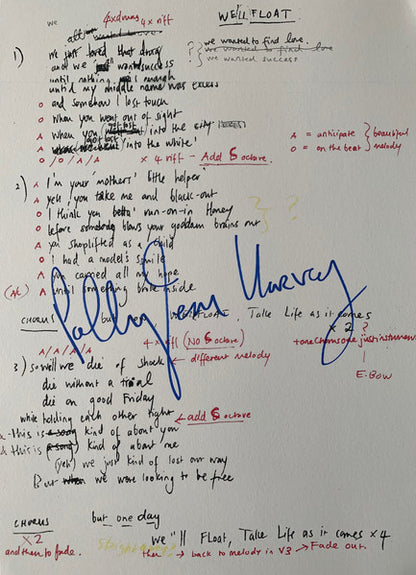 WE'LL FLOAT
we 4xdrums 4x riff
we wanted to find love.
1) we just loved that drug ? we wanted to find love
and we just wanted success ? we wanted success
until nothing is enough
until my middle name was excess
O and somehow I lost touch
O when you went out of sight
A when you got lost into the city
A got lost into the white'
O/O/A/A x 4 riff - Add 8 octave.
A = anticipate } beautiful
O = on the beat } melody
2) A I'm your 'mothers' little helper
A yeh you take me and black-out
O I think you betta' run-on-in Honey ? ?
O before somebody blows your goddam brains out
A you shoplifted as a child
O I had a models smile
A you carried all my hope
A until something broke inside
CHORUS but FLOAT. Take Life as it comes
x 2 ?
A/A/A/A 4x riff (No 8 octave) tone
E-Bow
3) so well we 'die' of shock ← different melody
die without a trial
die on good Friday
while holding each other tight ← add 8 octave
this is a song kind of about you
A this is a song kind of about me
(yeh) we just kind of lost our way
But when we were looking to be free
CHORUS but one day
x2 we'll Float, Take Life as it comes x4
and then to fade. then → back to melody in V3 → Fade out.
Polly Jean Harvey